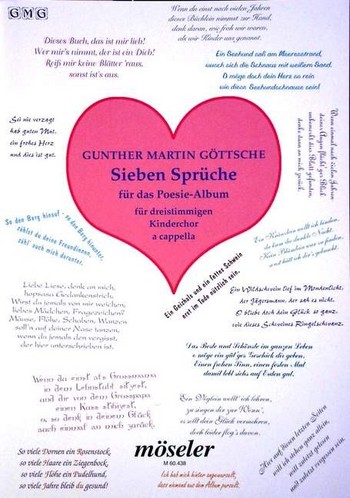 GMG
Wenn du einst nach vielen Jahren
dieses Büchlein nimmst zur Hand,
denk daran, wie froh wir waren,
als wir Kinder uns genannt.
Dieses Buch, das ist mir lieb!
Wer mir's nimmt, der ist ein Dieb!
Reiß mir keine Blätter 'raus,
sonst ist's aus.
Ein Seehund saß am Meeresstrand,
wusch sich die Schnauze mit weißem Sand.
O möge doch dein Herz so rein
wie diese Seehundschnauze sein!
Sei nie verzagt
hab guten Mut,
ein frohes Herz
und dies ist gut.
GUNTHER MARTIN GÖTTSCHE
Sieben Sprüche
für das Poesie-Album
für dreistimmigen
Kinderchor
a cappella
So den Berg hinauf - so den Berg hinunter,
fühlst du deine Freundinnen,
zähl' auch mich darunter.
Ein Geizhals und ein fettes Schwein
erst im Tode nützlich sein.
Liebe Liese, denk an mich,
hopsasa Gedankenstrich.
Wirst du jemals von mir weichen,
liebes Mädchen, Fragezeichen?
Mäuse, Flöhe, Schaben, Wanzen
soll'n auf deiner Nase tanzen,
wenn du jemals den vergisst,
der hier unterschrieben ist.
Ein Wildschwein lief im Mondenlicht,
der Jägersmann, der sah es nicht.
O bliebe doch dein Glück so ganz,
wie dieses Schweines Ringelschwanz.
Das Beste und Schönste im ganzen Leben
o möge ein gütiges Geschick dir geben.
Einen frohen Sinn, einen frohen Mut
damit lebt sich's auf Erden gut.
Wenn du einst als Grossmama
in dem Lehnstuhl sitzest,
und dir von dem Grosspapa
einen Kuss stibitzest,
o, so denk in deinem Glück
auch einmal an mich zurück.
Ein Vöglein wollt' ich lehren,
zu singen dir zur Wonn',
es sollt dein Glück vermehren,
doch leider flog's davon.
Auf dieser letzten Seiten
will ich stehen ganz allein,
will zuletzt grüssen
und zuletzt vergessen sein.
So viele Dornen ein Rosenstock,
so viele Haare ein Ziegenbock,
so viele Flöhe ein Pudelhund,
so viele Jahre bleib du gesund!
möseler
M 60.438
Ich hab mich hinten angewurzelt,
dass niemand aus dem Album purzelt.